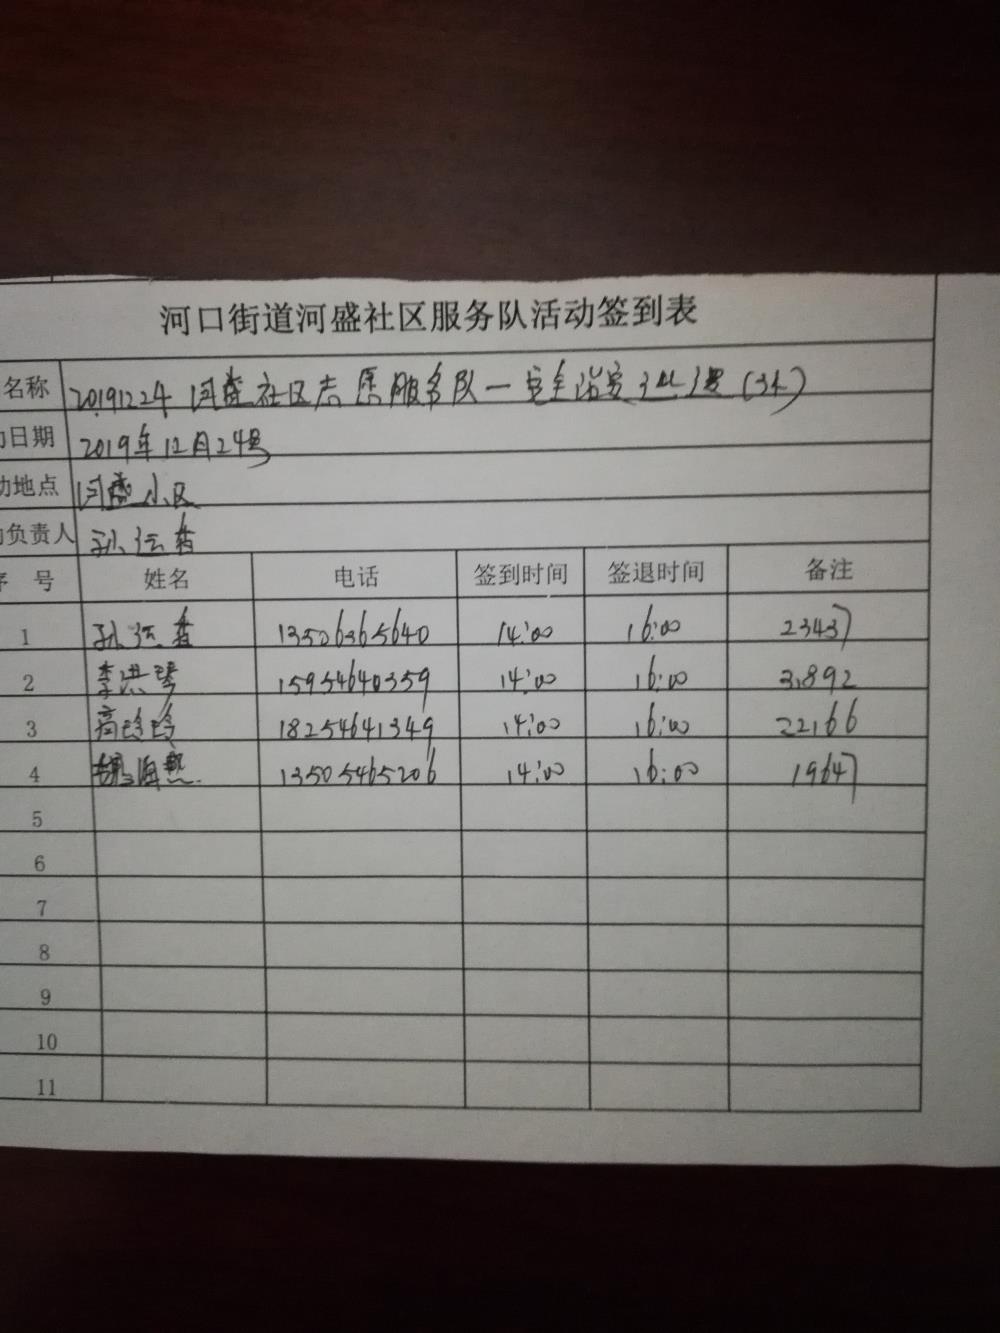 河口街道河盛社区服务队活动签到表
名称 20191224 河盛社区志愿服务队—安全 (3人)
日期 2019年12月24号
动地点 河盛小区
负责人 孙运香
序号 姓名 电话 签到时间 签退时间 备注
1 孙运香 13506365640 14:00 16:00 23437
2 李洪琴 15954640359 14:00 16:00 31892
3 高玲玲 18254641349 14:00 16:00 22166
4 海燕 13505465206 14:00 16:00 19647
5
6
7
8
9
10
11